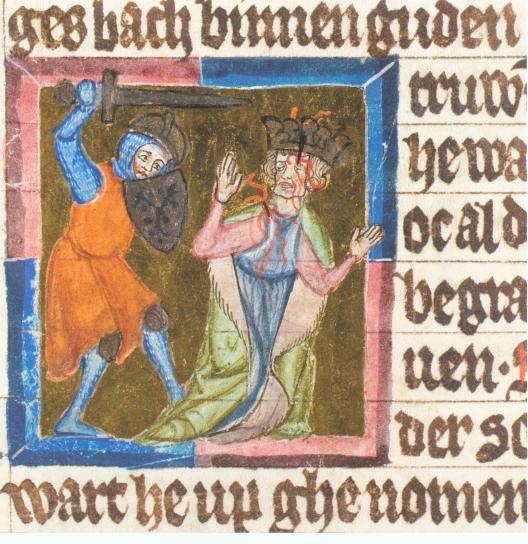 ges bach binnen guden
truw
hewa
ocald
begra
uen·
der sc
wart he up ghenomen